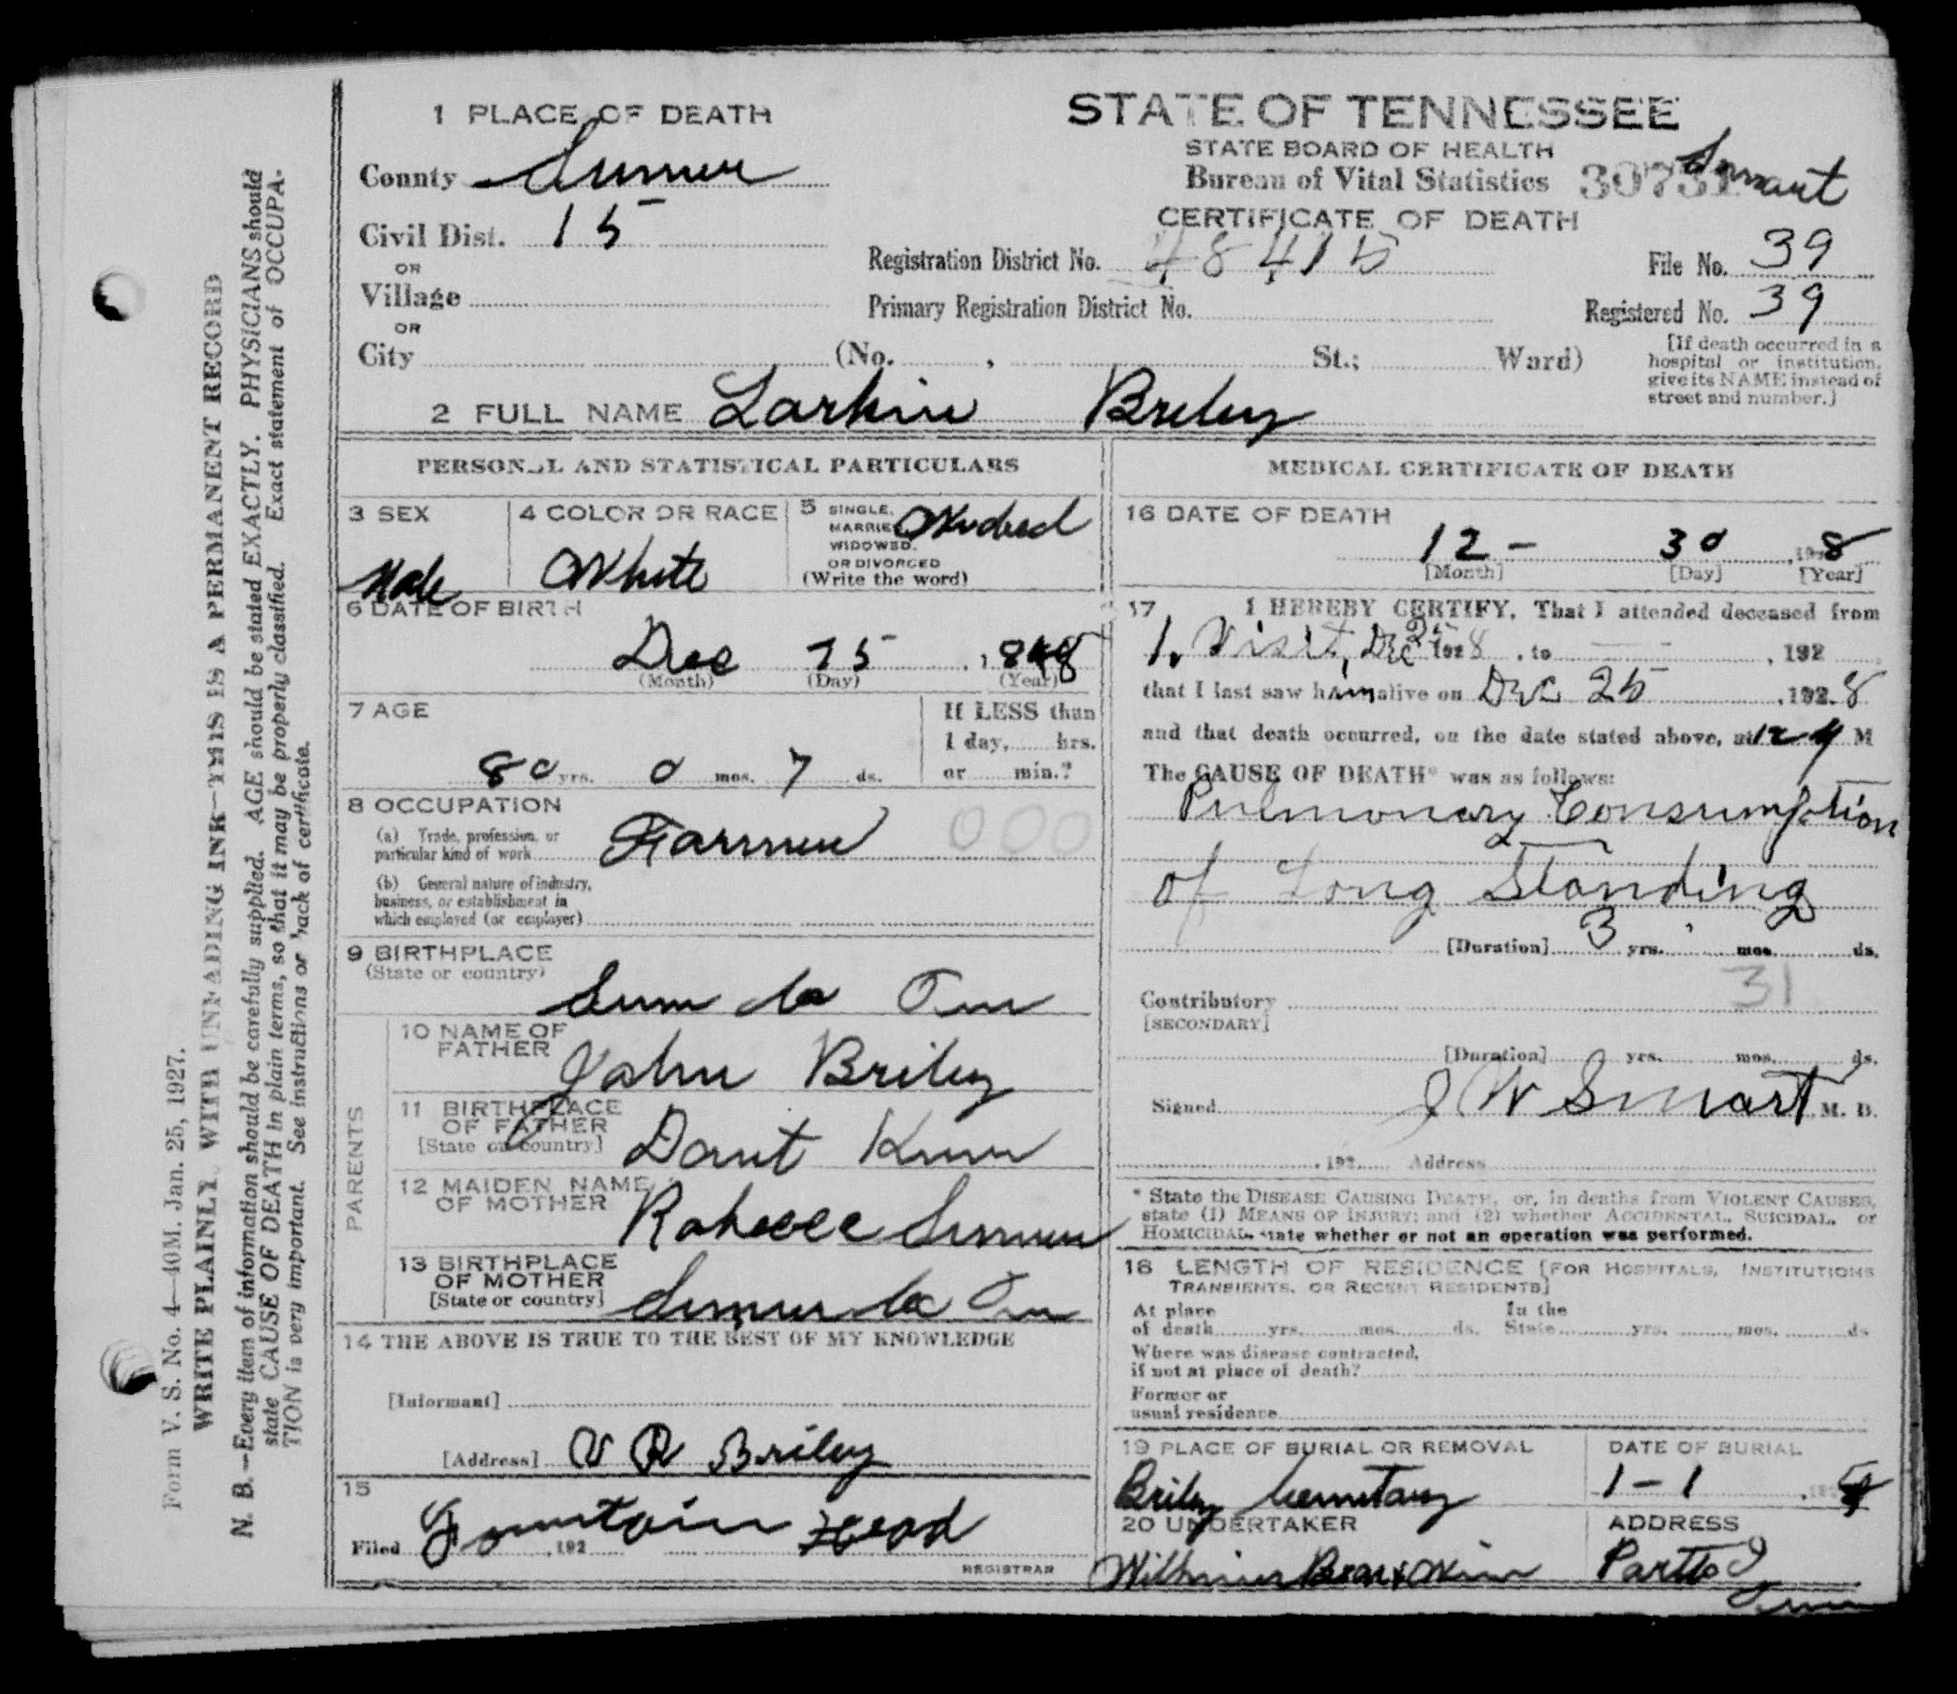 1 PLACE OF DEATH
County Sumner
Civil Dist. 15
OR
Village
OR
City (No. , St.; Ward)
STATE OF TENNESSEE
STATE BOARD OF HEALTH
Bureau of Vital Statistics 30731 Smart
CERTIFICATE OF DEATH
Registration District No. 48415
File No. 39
Primary Registration District No.
Registered No. 39
[If death occurred in a
hospital or institution,
give its NAME instead of
street and number.]
2 FULL NAME Larkin Briley
PERSONAL AND STATISTICAL PARTICULARS
3 SEX
Male
4 COLOR OR RACE
White
5 SINGLE,
MARRIED,
WIDOWED,
OR DIVORCED
(Write the word)
6 DATE OF BIRTH
Dec 25, 1848
(Month) (Day) (Year)
7 AGE
80 yrs. 0 mos. 7 ds.
If LESS than
1 day, hrs.
or min.?
8 OCCUPATION
(a) Trade, profession, or
particular kind of work Farmer 000
(b) General nature of industry,
business, or establishment in
which employed (or employer)
9 BIRTHPLACE
(State or country)
Sum Co Ten
PARENTS
10 NAME OF
FATHER John Briley
11 BIRTHPLACE
OF FATHER
[State or country] Dont Know
12 MAIDEN NAME
OF MOTHER
13 BIRTHPLACE
OF MOTHER
[State or country] Sumner Co Ten
14 THE ABOVE IS TRUE TO THE BEST OF MY KNOWLEDGE
[Informant]
[Address] V R Briley
15
Filed Fountain Head , 192
REGISTRAR
MEDICAL CERTIFICATE OF DEATH
16 DATE OF DEATH
12 - 30 , 1928
[Month] [Day] [Year]
17 I HEREBY CERTIFY, That I attended deceased from
1. Visit, Dec 25 1928, to , 192
that I last saw him alive on Dec 25 , 1928
and that death occurred, on the date stated above, at 12 M
The CAUSE OF DEATH* was as follows:
Pulmonary Consumption
of Long Standing
[Duration] 3 yrs. mos. ds.
Contributory 31
[SECONDARY]
[Duration] yrs. mos. ds.
Signed J W Smart M. D.
, 192 Address
* State the DISEASE CAUSING DEATH, or, in deaths from VIOLENT CAUSES,
state (1) MEANS OF INJURY; and (2) whether ACCIDENTAL, SUICIDAL, or
HOMICIDAL. State whether or not an operation was performed.
18 LENGTH OF RESIDENCE [FOR HOSPITALS, INSTITUTIONS
TRANSIENTS, OR RECENT RESIDENTS]
At place
of death yrs. mos. ds.
In the
State yrs. mos. ds
Where was disease contracted,
if not at place of death?
Former or
usual residence
19 PLACE OF BURIAL OR REMOVAL
Briley Cemetary
DATE OF BURIAL
1 - 1 , 192
20 UNDERTAKER
ADDRESS
Form V. S. No. 4—40M. Jan. 25, 1927.
WRITE PLAINLY WITH UNFADING INK—THIS IS A PERMANENT RECORD
N. B.—Every item of information should be carefully supplied. AGE should be stated EXACTLY. PHYSICIANS should
state CAUSE OF DEATH in plain terms, so that it may be properly classified. Exact statement of OCCUPA-
TION is very important. See instructions on back of certificate.